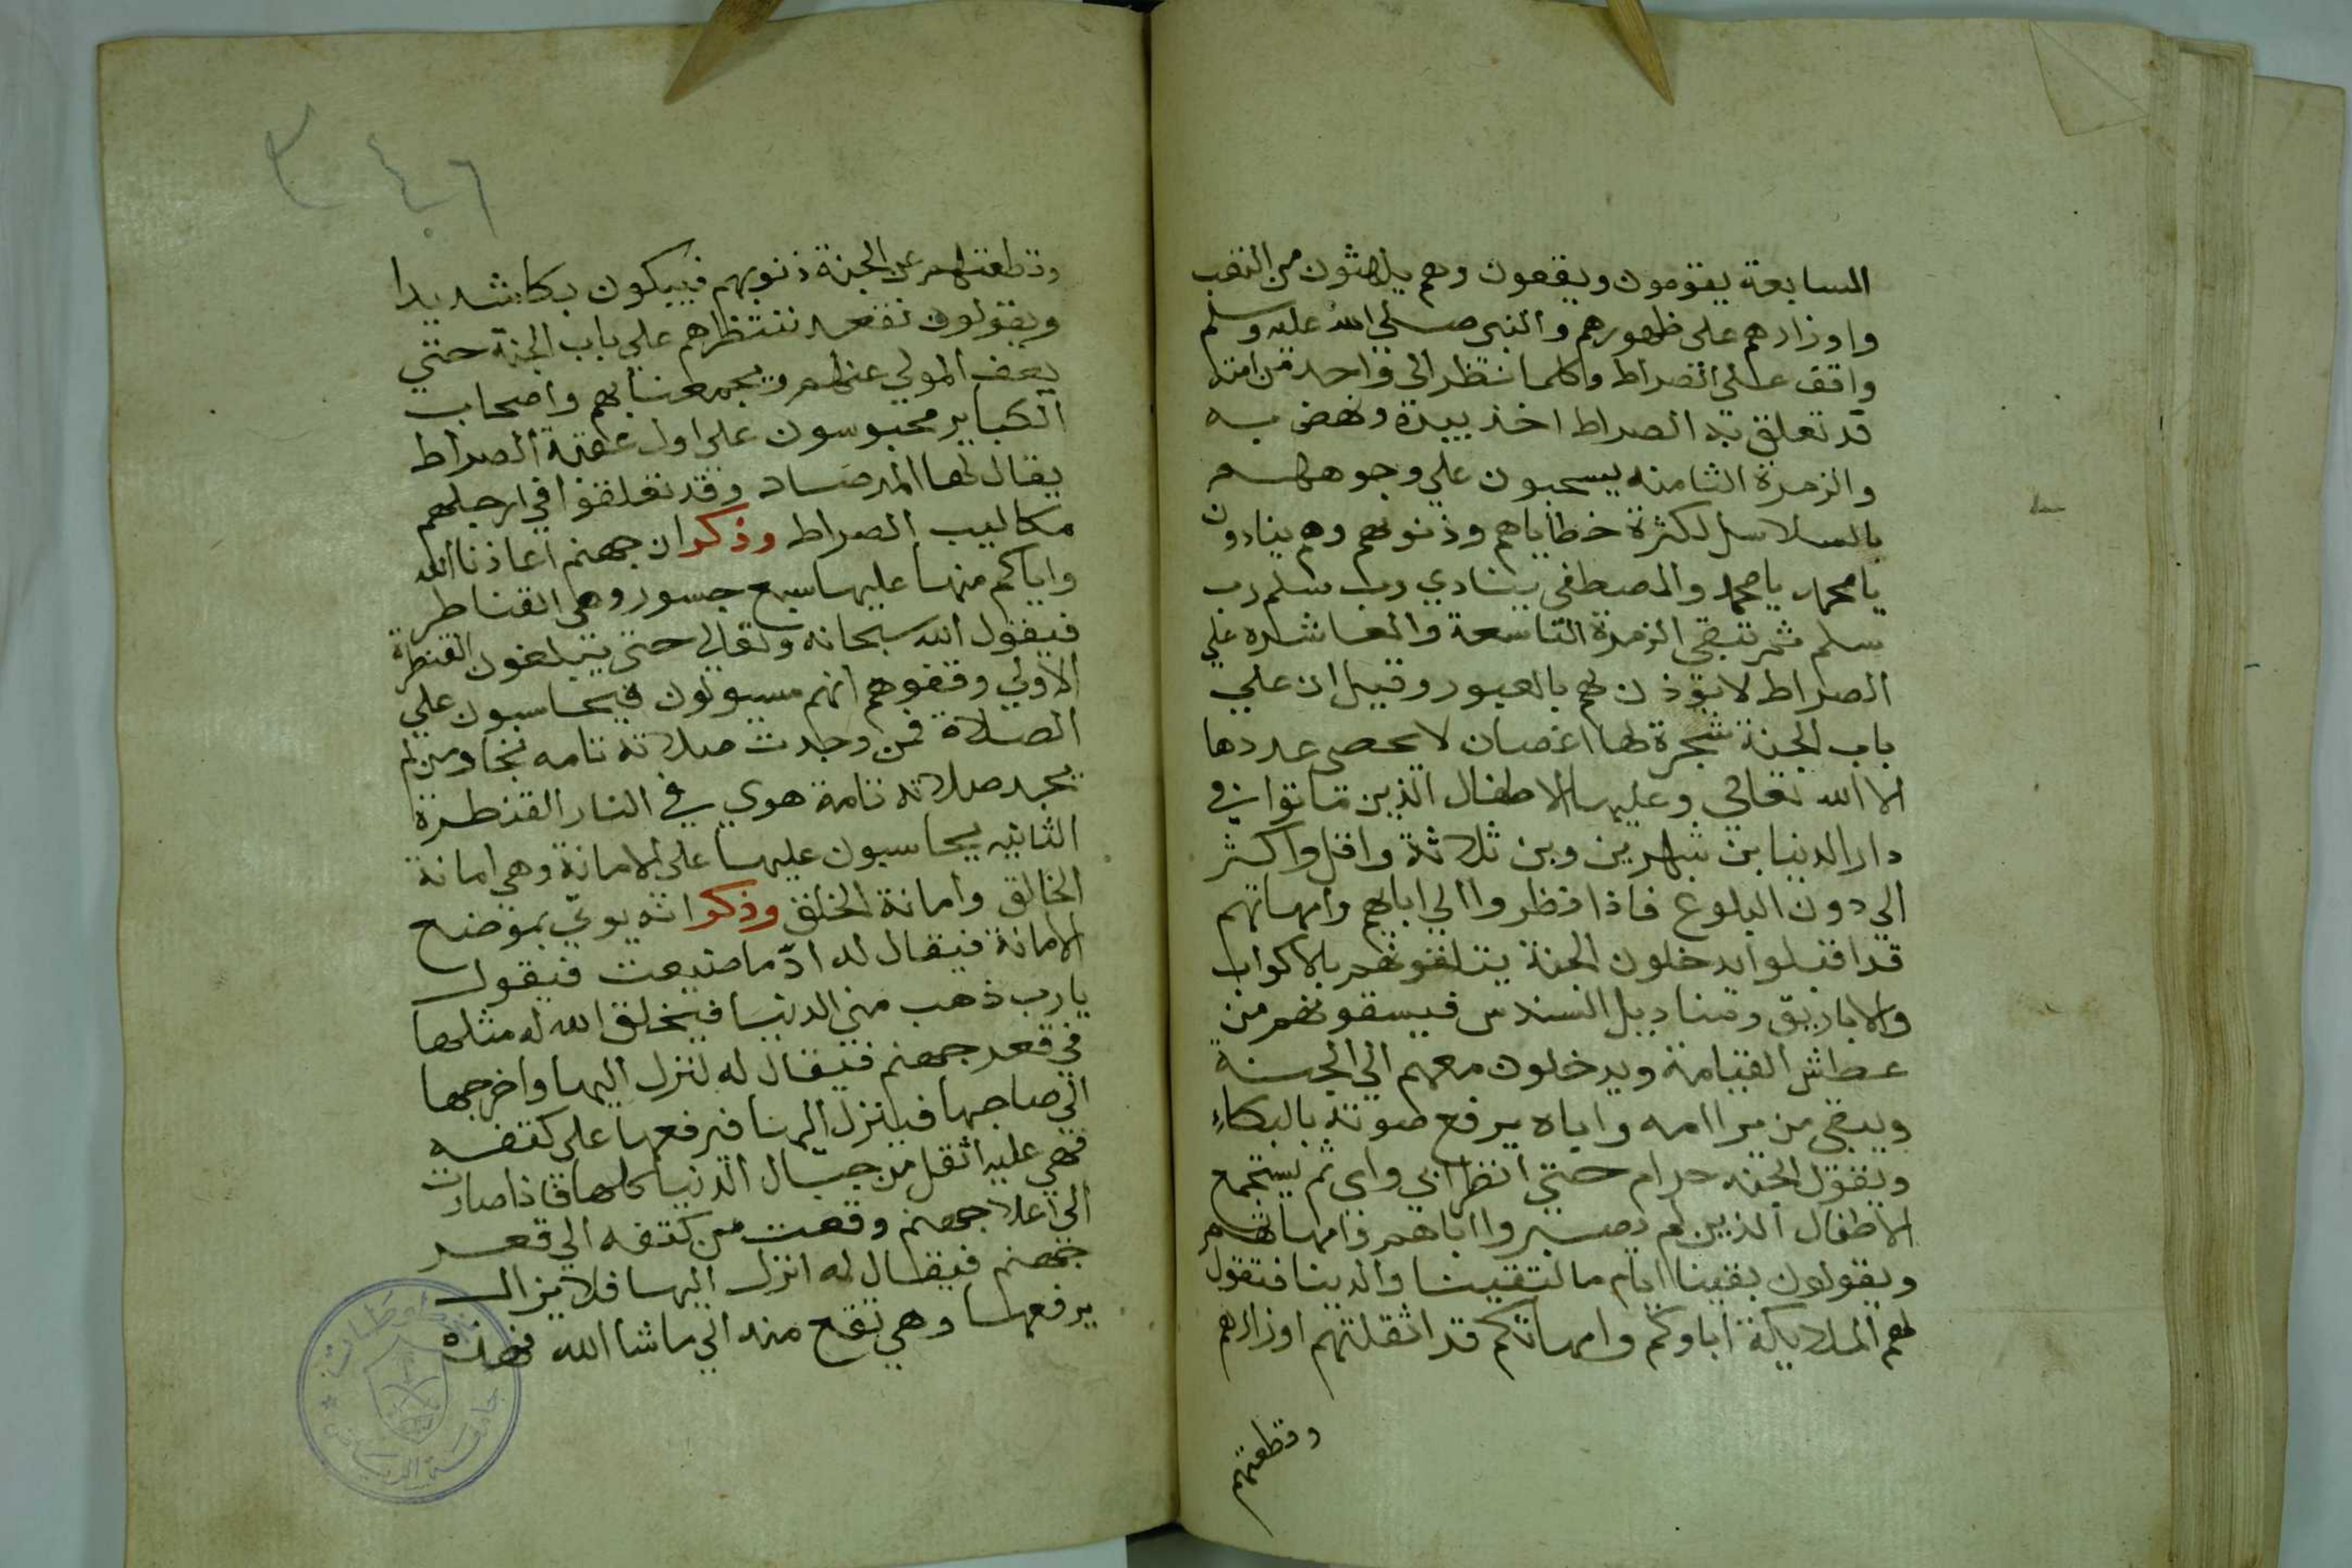 السابعة يقومون ويقعون وهم يلهثون من التعب
واوزارهم على ظهورهم والنبي صلي الله عليه وسلم
واقف علي الصراط وكلما نظر الي واحد من امته
قد تعلق به الصراط اخذ بيده ونهض به
والزمرة الثامنه يسحبون علي وجوههم
بالسلاسل لكثرة خطاياهم وذنوبهم وهم ينادون
يا محمد يا محمد والمصطفى ينادي رب سلم رب
سلم ثم تبقي الزمرة التاسعة والعاشره علي
الصراط لا يوذن لهم بالعبور وقيل ان علي
باب الجنة شجرة لها اغصان لا يحصي عددها
الا الله تعالي وعليها الاطفال الذين ماتوا في
دار الدنيا بن شهرين وبن ثلاثة واقل واكثر
الي دون البلوغ فاذا نظروا الي ابايهم وامهاتهم
قد اقبلوا يدخلون الجنة يتلقونهم بالاكواب
والاباريق ومناديل السندس فيسقونهم من
عطش القيامة ويدخلون معهم الي الجنة
ويبقي من يرا امه واباه يرفع صوته بالبكاء
ويقول الجنه حرام حتي انظر ابي وامي ثم يستجمع
الاطفال الذين لم يصيروا اباهم وامهاتهم
ويقولون بقينا ايتام ما لتقينا والدينا فتقول
لهم الملايكة اباوكم وامهاتكم قد اثقلتهم اوزارهم
وقطعتهم
٣٤٦
وقطعتهم عن الجنة ذنوبهم فيبكون بكا شديدا
ويقولون نقعد ننتظرهم علي باب الجنة حتي
يعف المولي عنهم ويجمعنا بهم واصحاب
الكباير محبوسون علي اول عقبة الصراط
يقال لها المرصاد وقد تعلقوا في ارجلهم
مكاليب الصراط وذكر ان جهنم اعاذنا الله
واياكم منها عليها سبع جسور وهي القناطر
فيقول الله سبحانه وتعالي حتي يبلغون القنطرة
الاولي وقفوهم انهم مسيولون فيحاسبون علي
الصلاة فمن وجدت صلاته تامه نجا ومن لم
يجد صلاته تامة هوي في النار القنطرة
الثانيه يحاسبون عليها علي الامانة وهي امانة
الخالق وامانة الخلق وذكر انه يوتي بموضع
الامانة فيقال له ادّ ما ضيعت فيقول
يا رب ذهب مني الدنيا فيخلق الله له مثلها
في قعر جهنم فيقال له لنزل اليها واخرجها
الي صاحبها فينزل اليها فيرفعها علي كتفه
فهي عليه اثقل من جبال الدنيا كلها فاذا صارت
الي اعلا جهنم وقعت من كتفه الي قعر
جهنم فيقال له انزل اليها فلا يزال
يرفعها وهي تقع منه الي ما شا الله فهذه
جامعة الرياض